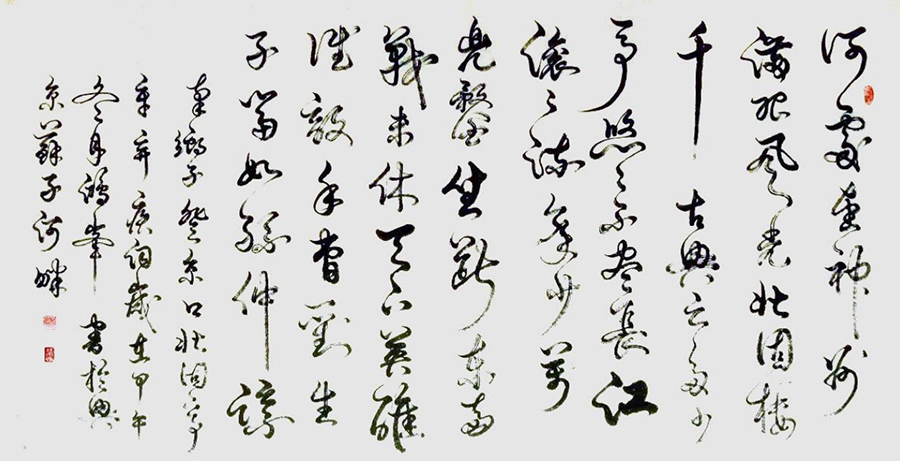 何處望神州
滿眼風光北固樓
千古興亡多少
事悠々不盡長江
滚々流年少萬
兜鍪坐斷東南
戰未休天下英雄
誰敵手曹劉生
子當如孫仲謀
南鄉子登京口北固亭
辛弃疾詞歲在甲午
冬月鴻峯書於興
京蘇子河畔